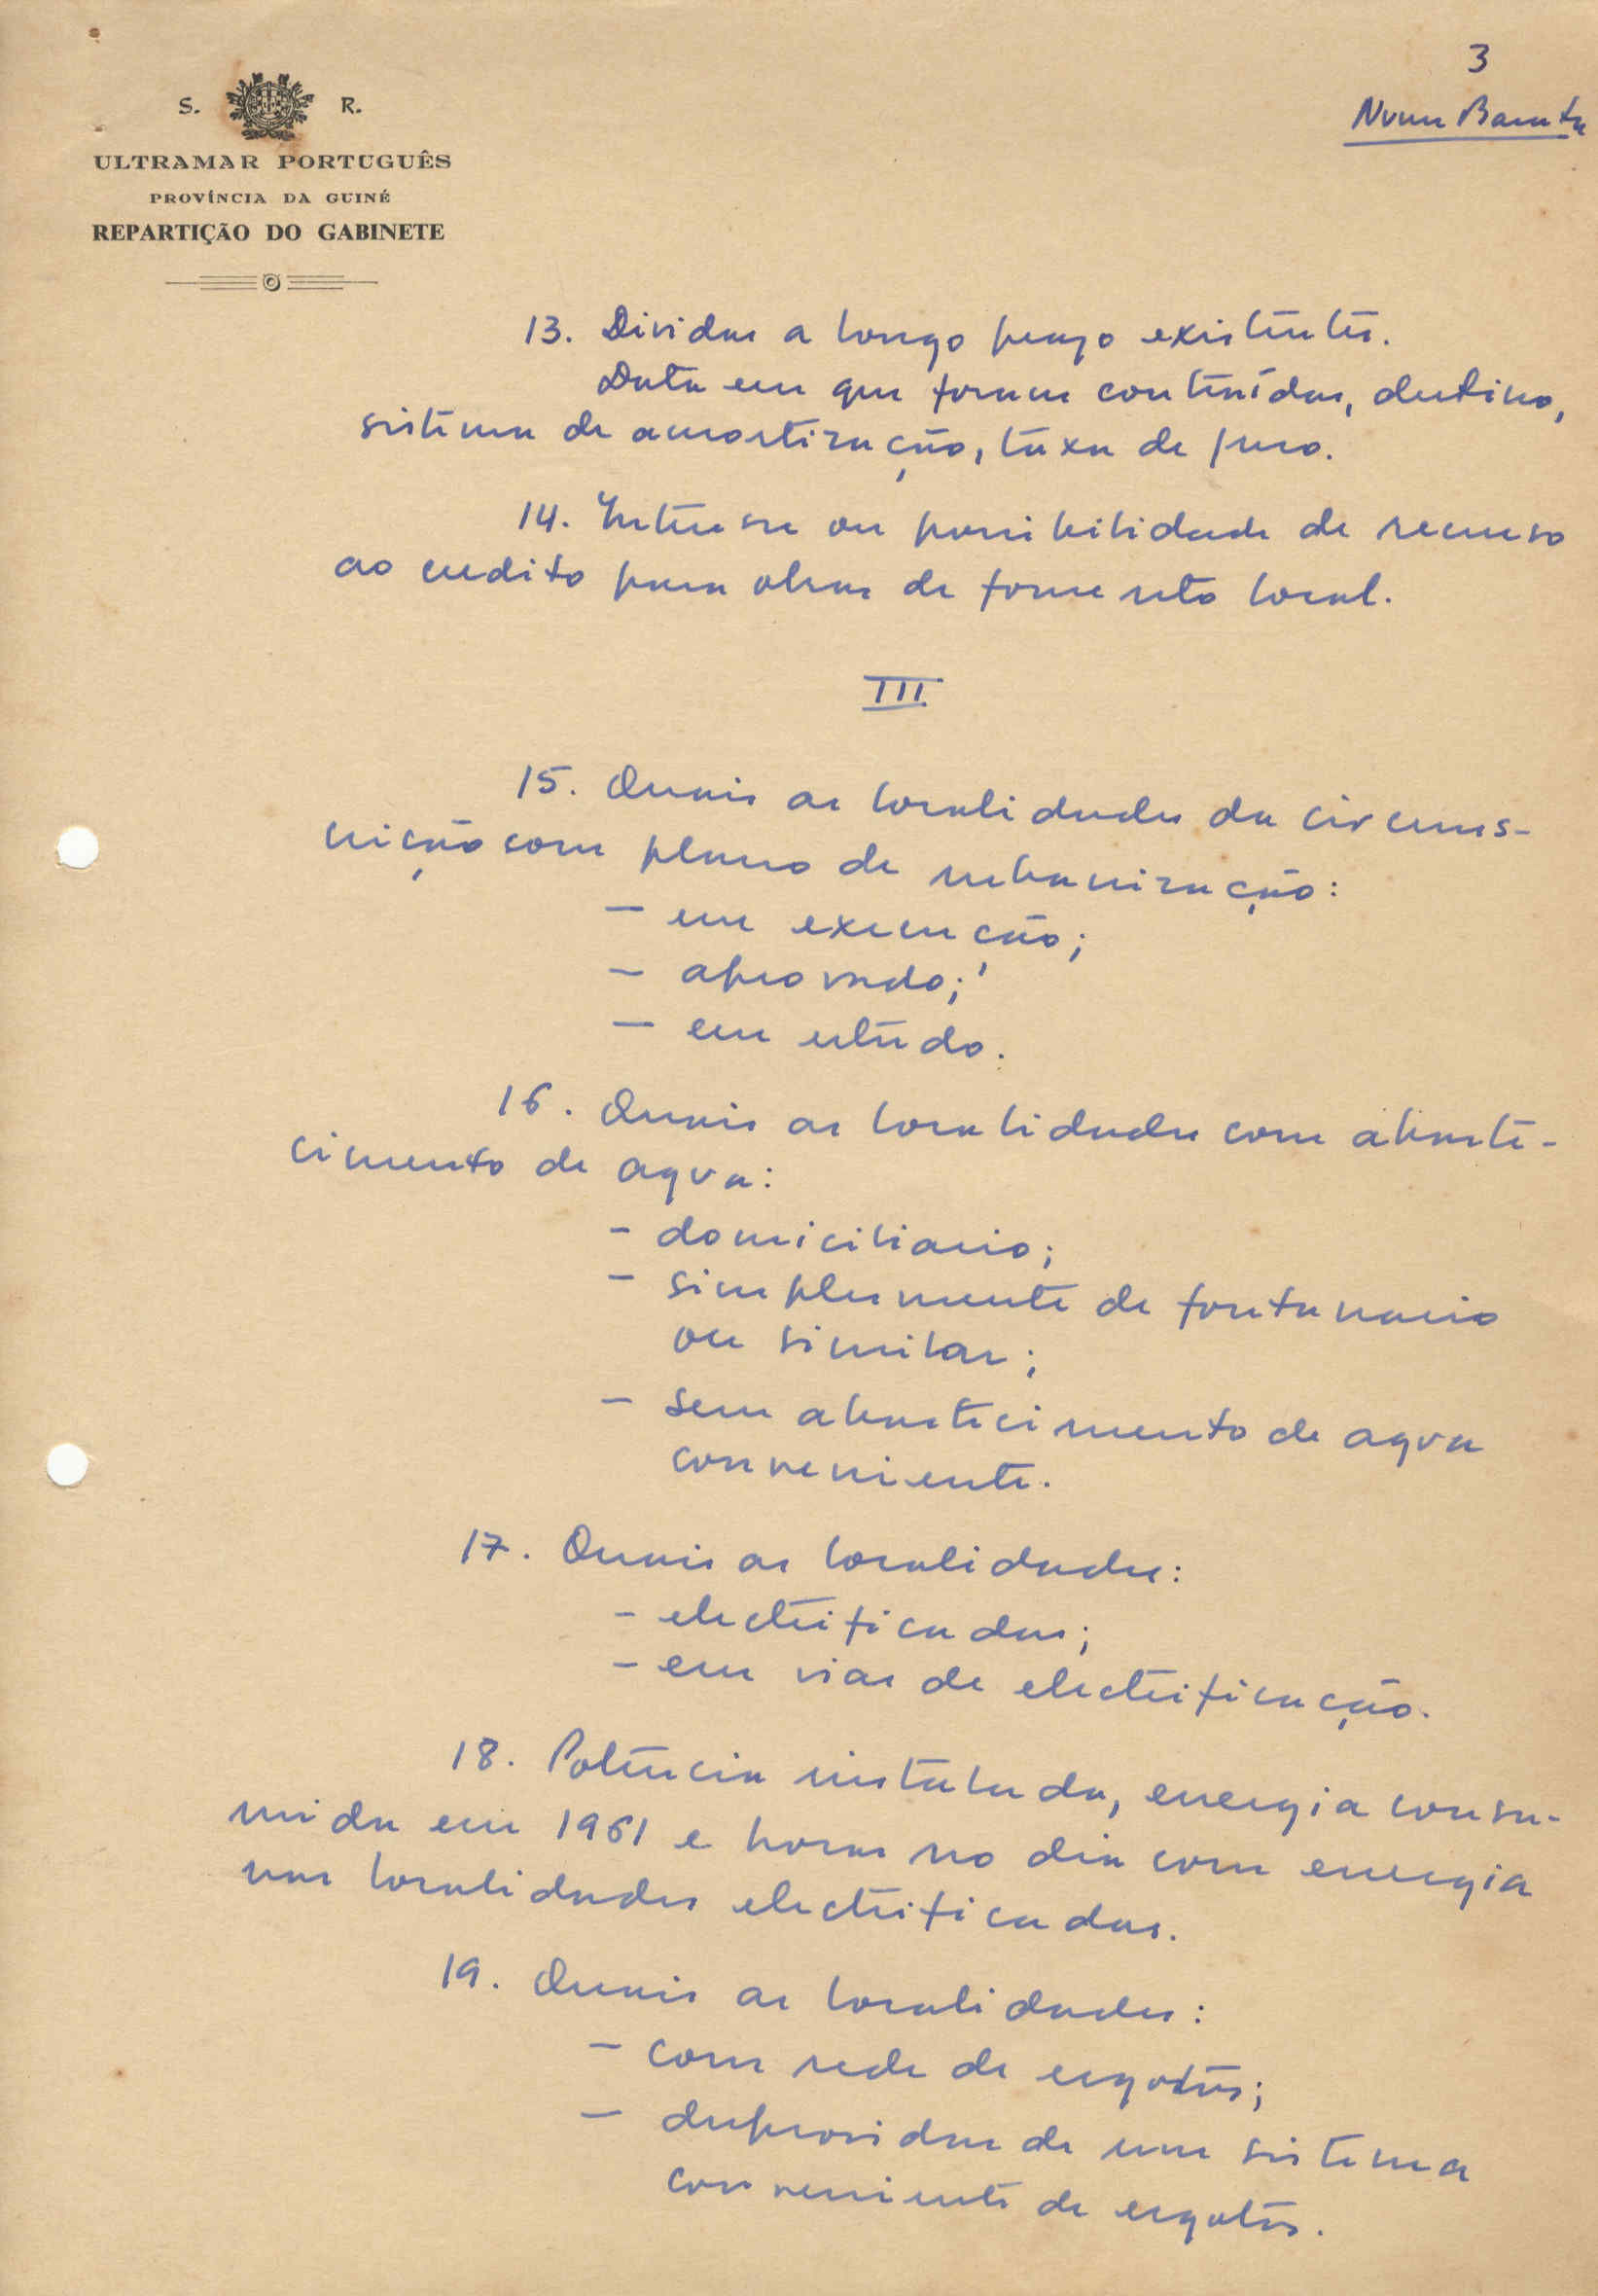 3
Nuno Barreto
S. R.
ULTRAMAR PORTUGUÊS
PROVÍNCIA DA GUINÉ
REPARTIÇÃO DO GABINETE
13. Dividas a longo prazo existentes.
Data em que foram contraídas, destino,
sistema de amortização, taxa de juro.
14. Interesse ou possibilidade de recurso
ao credito para obras de fomento local.
III
15. Quais as localidades da circuns-
crição com plano de urbanização:
- em execução;
- aprovado;
- em estudo.
16. Quais as localidades com abaste-
cimento de agua:
- domiciliario;
- simplesmente de fontanario
ou similar;
- sem abastecimento de agua
conveniente.
17. Quais as localidades:
- electrificadas;
- em vias de electrificação.
18. Potencia instalada, energia consu-
mida em 1961 e horas no dia com energia
nas localidades electrificadas.
19. Quais as localidades:
- com rede de esgotos;
- desprovidas de um sistema
conveniente de esgotos.